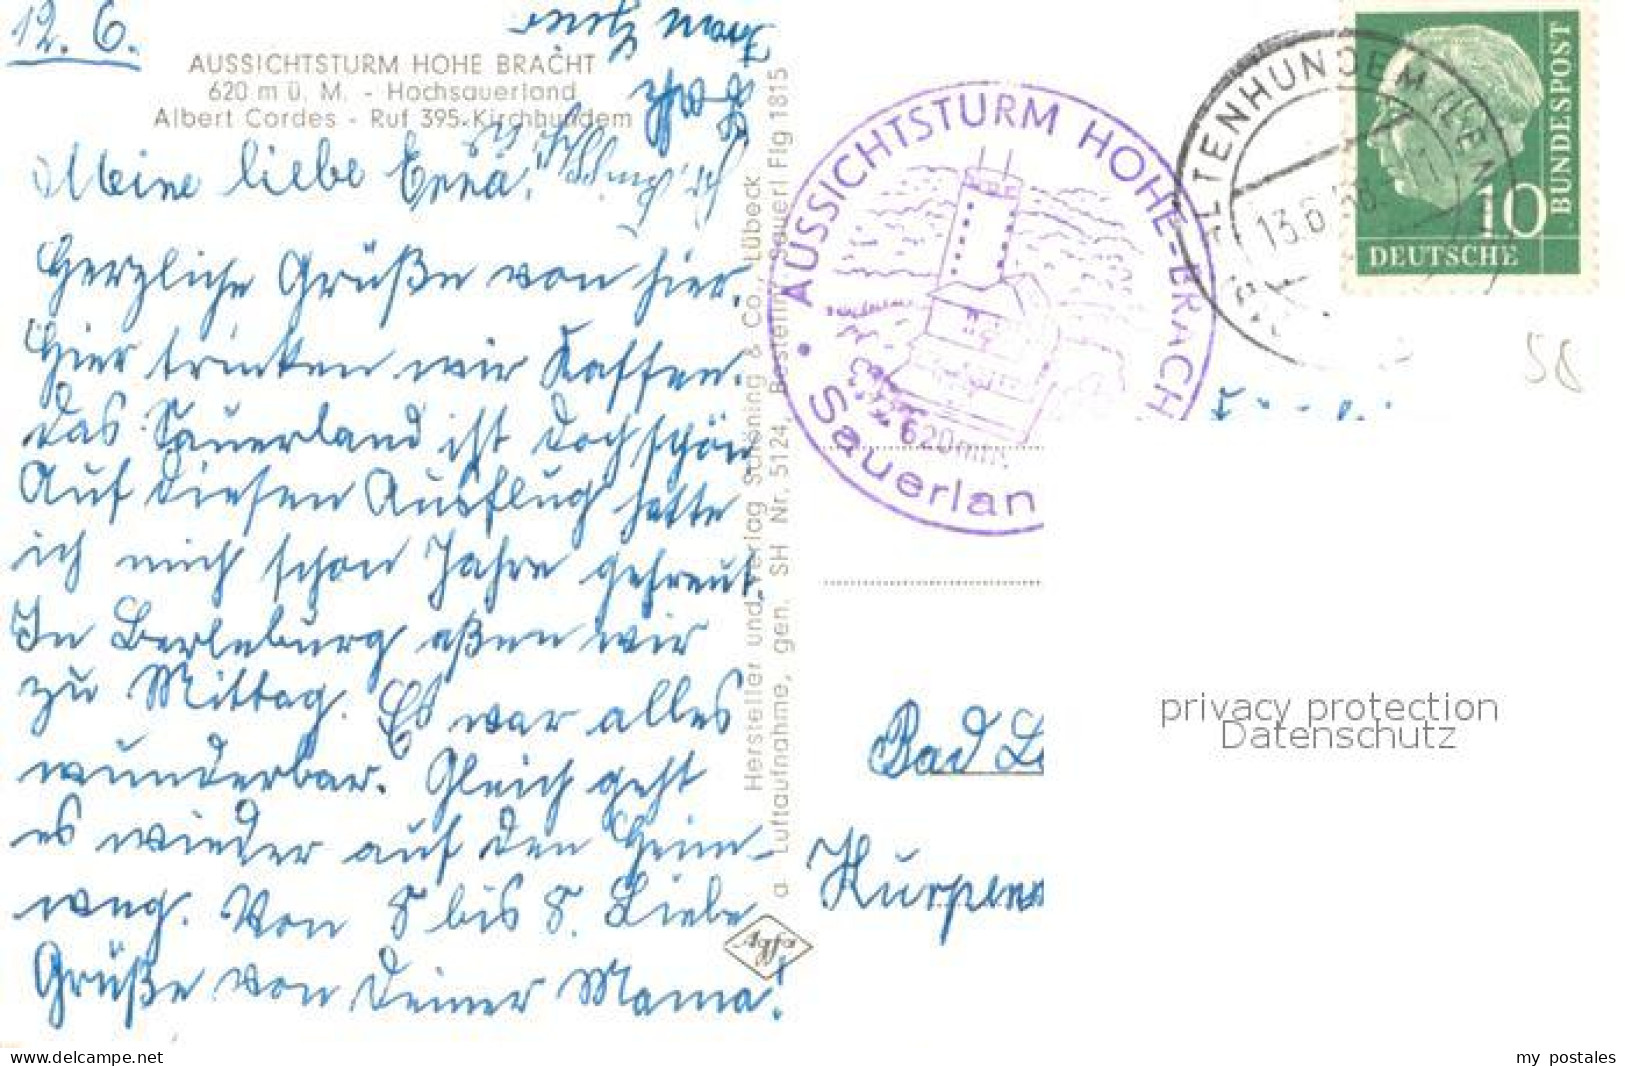 12. 6.
AUSSICHTSTURM HOHE BRACHT
620 m ü. M. - Hochsauerland
Albert Cordes - Ruf 395 Kirchhundem
Meine liebe Erna!
Herzliche Grüße von hier.
Hier trinken wir Kaffee.
Das Sauerland ist doch schön
Auf diesen Ausflug hatte
ich mich schon Jahre gefreut.
In Berleburg aßen wir
zu Mittag. Es war alles
wunderbar. Gleich geht
es wieder auf den Heim-
weg. Von 8 bis 8. Liebe
Grüße von Deiner Mama!
Hersteller und Verlag Schöning & Co., Lübeck
a Luftaufnahme, gen. SH Nr. 5124, Bestellnr. Sauerl Flg 1815
Agfa
AUSSICHTSTURM HOHE-BRACH
Sauerlan
620m
ALTENHUNDEM (LENN
13.6.58
10
BUNDESPOST
DEUTSCHE
58
Bad
privacy protection
Datenschutz
www.delcampe.net
my postales